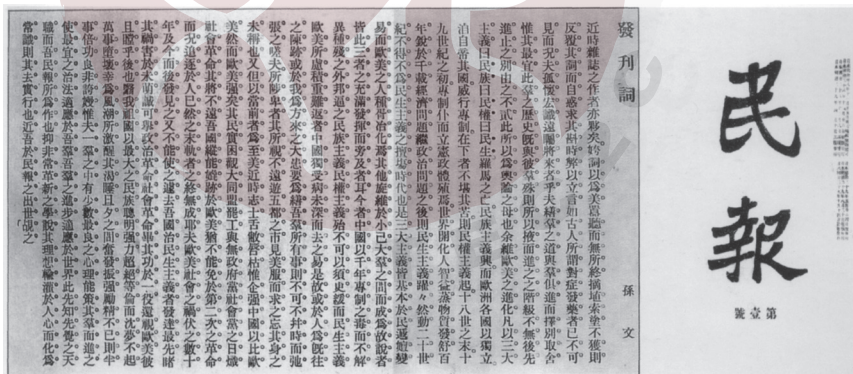 民報
第壹號
發刊詞
孫文
近時雜誌之作者亦夥矣姱詞以爲美囂聽而無所終摘埴索塗不獲則
反覆其詞而自惑求其斟時弊以立言如古人所謂對症發藥者已不可
見而況夫孤懷宏識遠矚將來者乎夫繕羣之道與羣俱進而擇別取舍
惟其最宜此羣之歷史既與彼羣殊則所以掖而進之之階級不無後先
進止之別由之不貳此所以爲輿論之母也余維歐美之進化凡以三大
主義曰民族曰民權曰民生羅馬之亡民族主義興而歐洲各國以獨立
洎自帝其國威行專制在下者不堪其苦則民權主義起十八世之末十
九世紀之初專制仆而立憲政體殖焉世界開化人智益蒸物質發舒百
年銳於千載經濟問題繼政治問題之後則民生主義躍々然動二十世
紀不得不爲民生主義之擅塲時代也是三大主義皆基本於民遞嬗變
易而歐美之人種胥冶化焉其他旋維於小己大羣之間而成爲故說者
皆此三者之充滿發揮而旁及者耳今者中國以千年專制之毒而不解
異種殘之外邦逼之民族主義民權主義殆不可以須臾緩而民生主義
歐美所慮積重難返者中國獨受病未深而去之易是故或於人爲既往
之陳跡或於我爲方來之大患要爲繕吾羣所有事則不可不幷時而弛
張之嗟夫所陟卑者其所視不遠遊五都之市見美服而求之忘其身之
未稱也又但以當前者爲至美近時志士舌敝唇枯惟企强中國以比歐
美然而歐美强矣其民實困觀大同盟罷工與無政府黨社會黨之日熾
社會革命其將不遠吾國縱能媲跡於歐美猶不能免於第二次之革命
而況追逐於人已然之末軌者之終無成耶夫歐美社會之禍伏之數十
年及今而後發見之又不能使之遽去吾國治民生主義者發達最先睹
其禍害於未萌誠可舉政治革命社會革命畢其功於一役還視歐美彼
且瞠乎後也翳我祖國以最大之民族聰明强力超絕等倫而沈夢不起
萬事墮壞幸爲風潮所激醒其渴睡旦夕之間奮發振强勵精不已則半
事倍功良非誇嫚惟夫一羣之中有少數最良之心理能策其羣而進之
使最宜之治法適應於吾羣吾羣之進步適應於世界此先知先覺之天
職而吾民報所爲作也抑非常革新之學說其理想輸灌於人心而化爲
常識則其去實行也近吾於民報之出世覘之